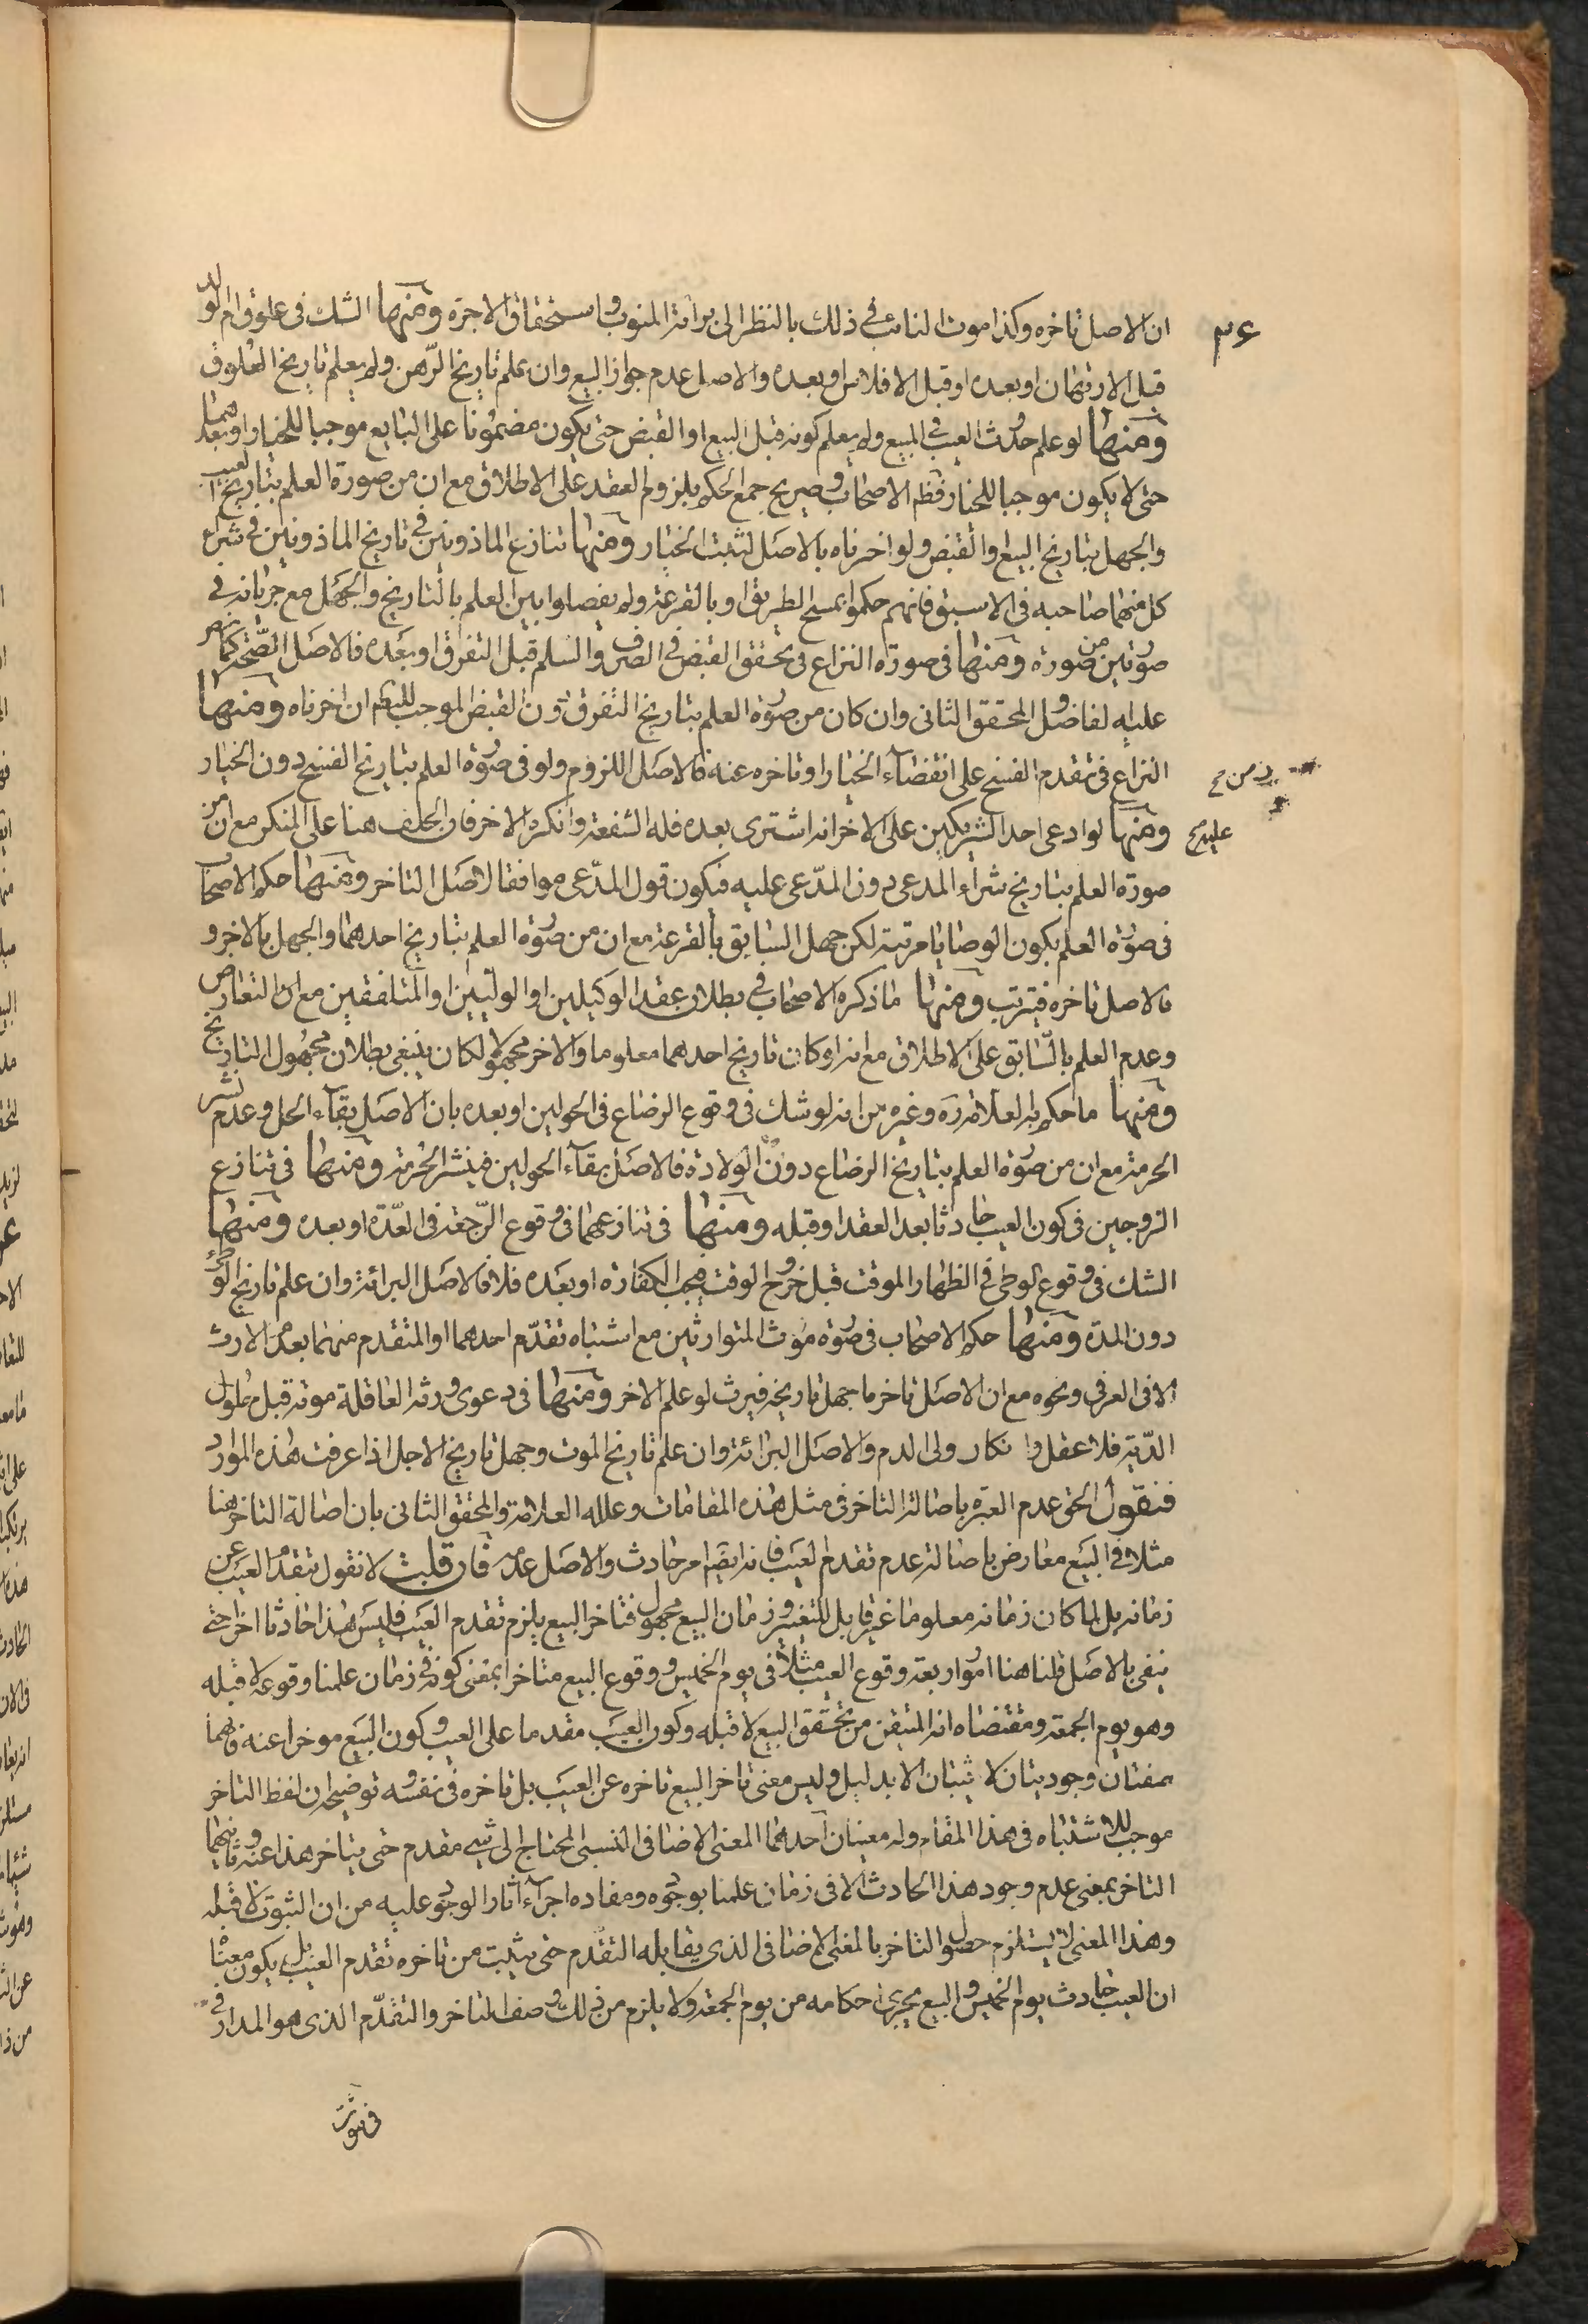 ٣۶
ان الاصل تاخره وكذا موت النائب فى ذلك بالنظر الى برائة المنوب واستحقاق الاجرة ومنها الشك فى علوق ام الولد
قبل الارتهان او بعده او قبل الافلاس او بعده والاصل عدم جواز البيع وان علم تاريخ الرهن ولم يعلم تاريخ العلوق
ومنها لو علم حدوث العيب فى المبيع ولم يعلم كونه قبل البيع او القبض حتى يكون مضمونا على البايع موجبا للخيار او بعدهما
حتى لا يكون موجبا للخيار فظ الاصحاب وصريح جمع الحكم بلزوم العقد على الاطلاق مع ان من صورة العلم بتاريخ العيب
والجهل بتاريخ البيع والقبض ولو اخرناه بالاصل لثبت الخيار ومنها تنازع الماذونين فى تاريخ الماذونين فى شراء
كل منهما صاحبه فى الاسبق فانهم حكموا بمسح الطريق او بالقرعة ولم يفصلوا بين العلم بالتاريخ والجهل مع جريانه فى
صورتين من صورة ومنها فى صورة النزاع فى تحقق القبض فى الصرف والسلم قبل التفرق او بعده فالاصل الصحة كما نص
عليه الفاضل والمحقق الثانى وان كان من صورة العلم بتاريخ التفرق دون القبض الموجب للبطلان ان اخرناه ومنها
النزاع فى تقدم الفسخ على انقضآء الخيار او تاخره عنه فالاصل اللزوم ولو فى صورة العلم بتاريخ الفسخ دون الخيار
ومنها لو ادعى احد الشريكين على الاخر انه اشترى بعده فله الشفعة وانكره الاخر فان الحلف هنا على المنكر مع ان من
عليه صح
صورة العلم بتاريخ شراء المدعى دون المدّعى عليه فيكون قول المدّعى موافقا لاصل التاخر ومنها حكم الاصحاب
فى صورة العلم بكون الوصايا مرتبة لكن جهل السابق بالقرعة مع ان من صورة العلم بتاريخ احدهما والجهل بالاخر و
الاصل تاخره فيترتب ومنها ما ذكره الاصحاب فى بطلان عقد الوكيلين او الوليّين او المتلفقين مع ان التعارض
وعدم العلم بالسّابق على الاطلاق مع انه لو كان تاريخ احدهما معلوما والاخر مجهولا لكان ينبغى بطلان مجهول التاريخ
ومنها ما حكم به العلامة ره وغيره من انه لو شك فى وقوع الرضاع فى الحولين او بعده بان الاصل بقآء الحل وعدم نشر
الحرمة مع ان من صورة العلم بتاريخ الرضاع دون الولادة فالاصل بقآء الحولين فينشر الحرمة ومنها فى تنازع
الزوجين فى كون العيب حادثا بعد العقد او قبله ومنها فى تنازعهما فى وقوع الرّجعة فى العدّة او بعده ومنها
الشك فى وقوع الوطى فى الظهار الموقت قبل خروج الوقت فيجب الكفارة او بعده فلا فالاصل البرائة وان علم تاريخ الوطى
دون المدة ومنها حكم الاصحاب فى صورة موت المتوارثين مع اشتباه تقدّم احدهما او المتقدم منهما بعدم الارث
الا فى الغرقى ونحوه مع ان الاصل تاخر ما جهل تاريخه فيرث لو علم الاخر ومنها فى دعوى ورثه العاقلة موته قبل حلول
الدّية فلا عقل وا نكار ولى الدم والاصل البرائة وان علم تاريخ الموت وجهل تاريخ الاجل اذا عرفت هذه الموارد
فنقول الحق عدم العبرة باصالة التاخر فى مثل هذه المقامات وعلله العلامة والمحقق الثانى بان اصالة التاخر هنا
مثلا فى البيع معارض باصالة عدم تقدم العيب فانه ايضا امر حادث والاصل عدمه فان قلت لا نقول بتقدم العيب عن
زمانه بل لما كان زمانه معلوما غير قابل للتغيير وزمان البيع مجهول فتاخر البيع يلزم تقدم العيب فليس هذا حادثا اخر حتى
ينفى بالاصل قلنا هنا امور اربعة وقوع العيب مثلا فى يوم الخميس ووقوع البيع متاخرا بمعنى كونه فى زمان علمنا وقوعه لا قبله
وهو يوم الجمعة ومقتضاه انه المتيقن من تحقق البيع لا قبله وكون العيب مقدما على العيب وكون البيع موخرا عنه فانهما
صفتان وجوديتان لا يثبتان الا بدليل وليس معنى تاخر البيع تاخره عن العيب بل تاخره فى نفسه وتوضيحه ان لفظ التاخر
موجب للاشتباه فى هذا المقام وله معينان احدهما المعنى الاضافى النسبى المحتاج الى شئ مقدم حتى يتاخر هذا عنه وثانيهما
التاخر بمعنى عدم وجود هذا الحادث الا فى زمان علمنا بوجوده ومفاده اجرآء اثار الوجود عليه من ان الثبوت لا قبله
وهذا المعنى لا يستلزم حصول التاخر بالمعنى الاضافى الذى يقابله التقدم حتى يثبت من تاخره تقدم العيب بل يكون معنا
ان العيب حادث يوم الخميس والبيع يجرى احكامه من يوم الجمعة ولا يلزم من ذلك وصف التاخر والتقدّم الذى هو المدار فى
فى ثبوت